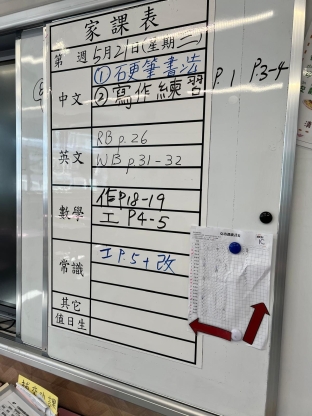 家課表
第 週 5月21日(星期二)
中文 ①硬筆書法
②寫作練習 P.1 P.3-4
英文 RB p.26
WB p.31-32
數學 作P18-19
工 P4-5
常識 工 P.5 + 改
其它
值日生